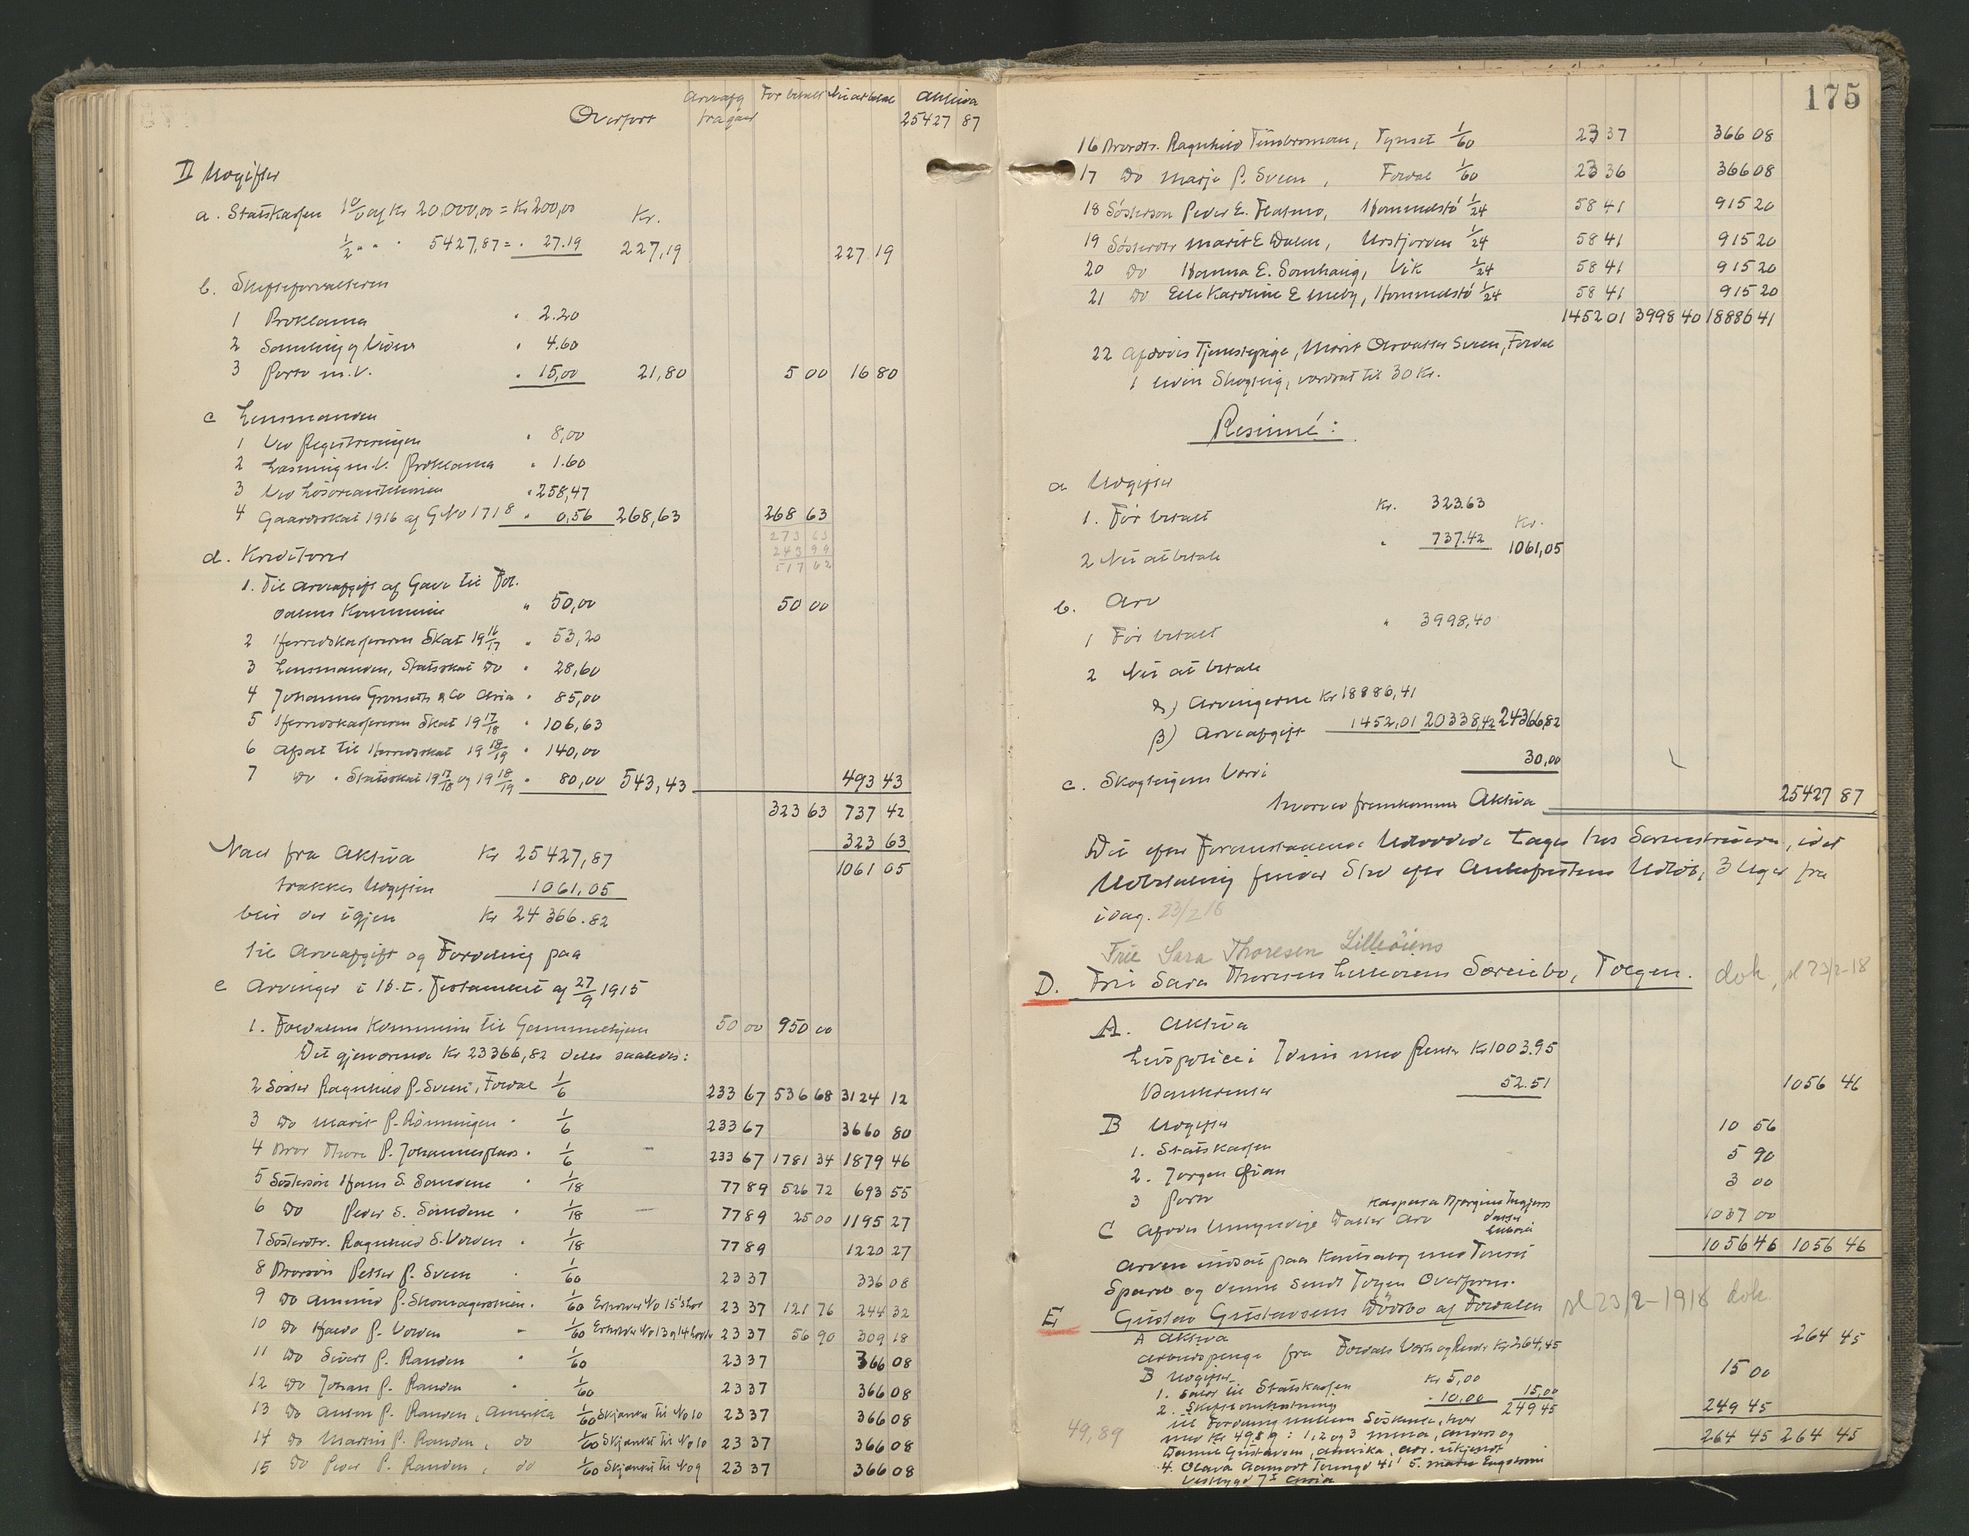 Overført Arveafg fragaar Før betalt Nu at betale Aktiva 25427 87
II Udgifter
a. Statskassen 1% af Kr 20.000,00 = Kr 200,00 Kr.
1/2 " " " 5427,87 = " 27.19 227,19 227 19
b. Skifteforvalteren
1 Proklama " 2.20
2 Samling og Viden " 4.60
3 Porto m.v. " 15,00 21,80 5 00 16 80
c Lensmanden
1 Ved Registreringen " 8,00
2 Læsning m.v. Proklama " 1.60
3 Ved Løsøreauktionen " 258,47
4 Gaardsskat 1916 af GNo 171 8 " 0,56 268,63 268 63
273 63
243 99
517 62
d. Kreditorer
1. Til Arveafgift af Gave til Fol-
dalens Kommune " 50,00 50 00
2 Herredskassereren Skat 19 16/17 " 53,20
3 Lensmanden, Statsskat Do " 28,60
4 Johannes Gronseth & Co Aria " 85,00
5 Herredskassereren Skat 19 17/18 " 106,63
6 Afsat til Herredsskat 19 18/19 " 140,00
7 Do " Statsskat 19 17/18 og 19 18/19 " 80,00 543,43 493 43
323 63 737 42
323 63
1061 05
Naar fra Aktiva Kr 25427,87
trækkes Udgiften 1061,05
blir der igjen Kr 24366.82
til Arveafgift og Fordeling paa
e Arvinger i H.t. Testament af 27/9 1915
1. Foldalens Kommune til Gammelhjem 50 00 950 00
Det gjenværende Kr 23366,82 deles saaledes:
2 Søster Ragnhild P. Sveen, Foldal 1/6 233 67 536 68 3124 12
3 Do Marit P. Rønningen " 1/6 233 67 3660 80
4 Bror Thore P. Johannesplads " 1/6 233 67 1781 34 1879 46
5 Søstersøn Hans S. Sandene " 1/18 77 89 526 72 693 55
6 Do Peder S. Sandene " 1/18 77 89 25 00 1195 27
7 Søsterdtr. Ragnhild S. Volden " 1/18 77 89 1220 27
8 Brorsøn Petter P. Sveen " 1/60 23 37 336 08
9 Do Amund P. Skomagermoen " 1/60 Erholder No 15's lod 23 37 121 76 244 32
10 Do Halvo P. Volden " 1/60 Erholder No 13 og 14 lodder 23 37 56 90 309 18
11 Do Sivert P. Randen " 1/60 23 37 366 08
12 Do Johan P. Randen " 1/60 23 37 366 08
13 Do Anton P. Randen, Amerika 1/60 Skjænket til No 10 23 37 366 08
14 Do Martin P. Randen, do 1/60 Skjænket til No 10 23 37 366 08
15 Do Peder P. Randen, do 1/60 Skjænket til No 9 23 37 366 08
175
16 Brordtr. Ragnhild Tinbromoen, Tynset 1/60 23 37 366 08
17 Do Marje P. Sveen, Foldal 1/60 23 36 366 08
18 Søsterson Peder E. Flatmo, Hommelstø 1/24 58 41 915 20
19 Søsterdtr Marit E Dalen, Urstjorden 1/24 58 41 915 20
20 Do Hanna E. Somhaug, Vik 1/24 58 41 915 20
21 Do Elle Karoline E Meby, Hommelstø 1/24 58 41 915 20
1452 01 3998 40 18886 41
22 Afdødes Tjenestepige, Marit Olvatter Sveen, Foldal
1 liden Skogteig, værdsat til 30 Kr.
Resumé:
a Udgifter
1. Før betalt Kr. 323.63 Kr.
2 Nu at betale " 737.42 1061,05
b. Arv
1 Før betalt " 3998,40
2 Nu at betale
α) Arvingerne Kr 18886,41
β) Arveafgift 1452,01 20338,42 24366,82
c. Skogteigens Værdi 30,00
hvorved fremkommer Aktiva 25427 87
Det efter Foranstaaende Udlodede tages hos Sorenskriveren, idet
Udbetaling finder Sted efter Ankefristens Udløb, 3 Uger fra
idag. 23/2 18
Frie Sara Thoresen Lilleøiens
D. Frie Sara Thoresen Lilleøiens Særeiebo, Tolgen. dok, sl 23/2-18
A. Aktiva
Livspolice i Idun med Renter Kr 1003.95
Bankrenter 52.51 1056 46
B Udgifter
1. Statskassen 10 56
2. Jørgen Øian 5 90
3 Porto 3 00
C Afdødes Umyndige Datter Arv Kaspara Bjørgine Ingjers datter Lilleøi 1037 00
1056 46 1056 46
Arven indsat paa Kontrabog med Tolgens
Spareb og denne sendt Tolgen Overform.
E Gustav Gustavsens Dødsbo af Foldalen sl 23/2-1918 dok.
A Aktiva
Arbeidspenge fra Foldals Verk og Renter Kr 264,45 264 45
B Udgifter
1. Salær til Statskassen Kr 5,00 15 00
2. Skifteomkostning " 10,00 15,00
249 45 249 45
til Fordeling mellem Søskende, hver
49,89 med Kr 49.89: 1, 2 og 3 Mina, Anders og 264 45 264 45
Daniel Gustavsen, Amerika, adr. ukjendt
4. Olava Aamodt Tounge 41 5. Mats Engstrøm
Vestbygd 7¹ Aria